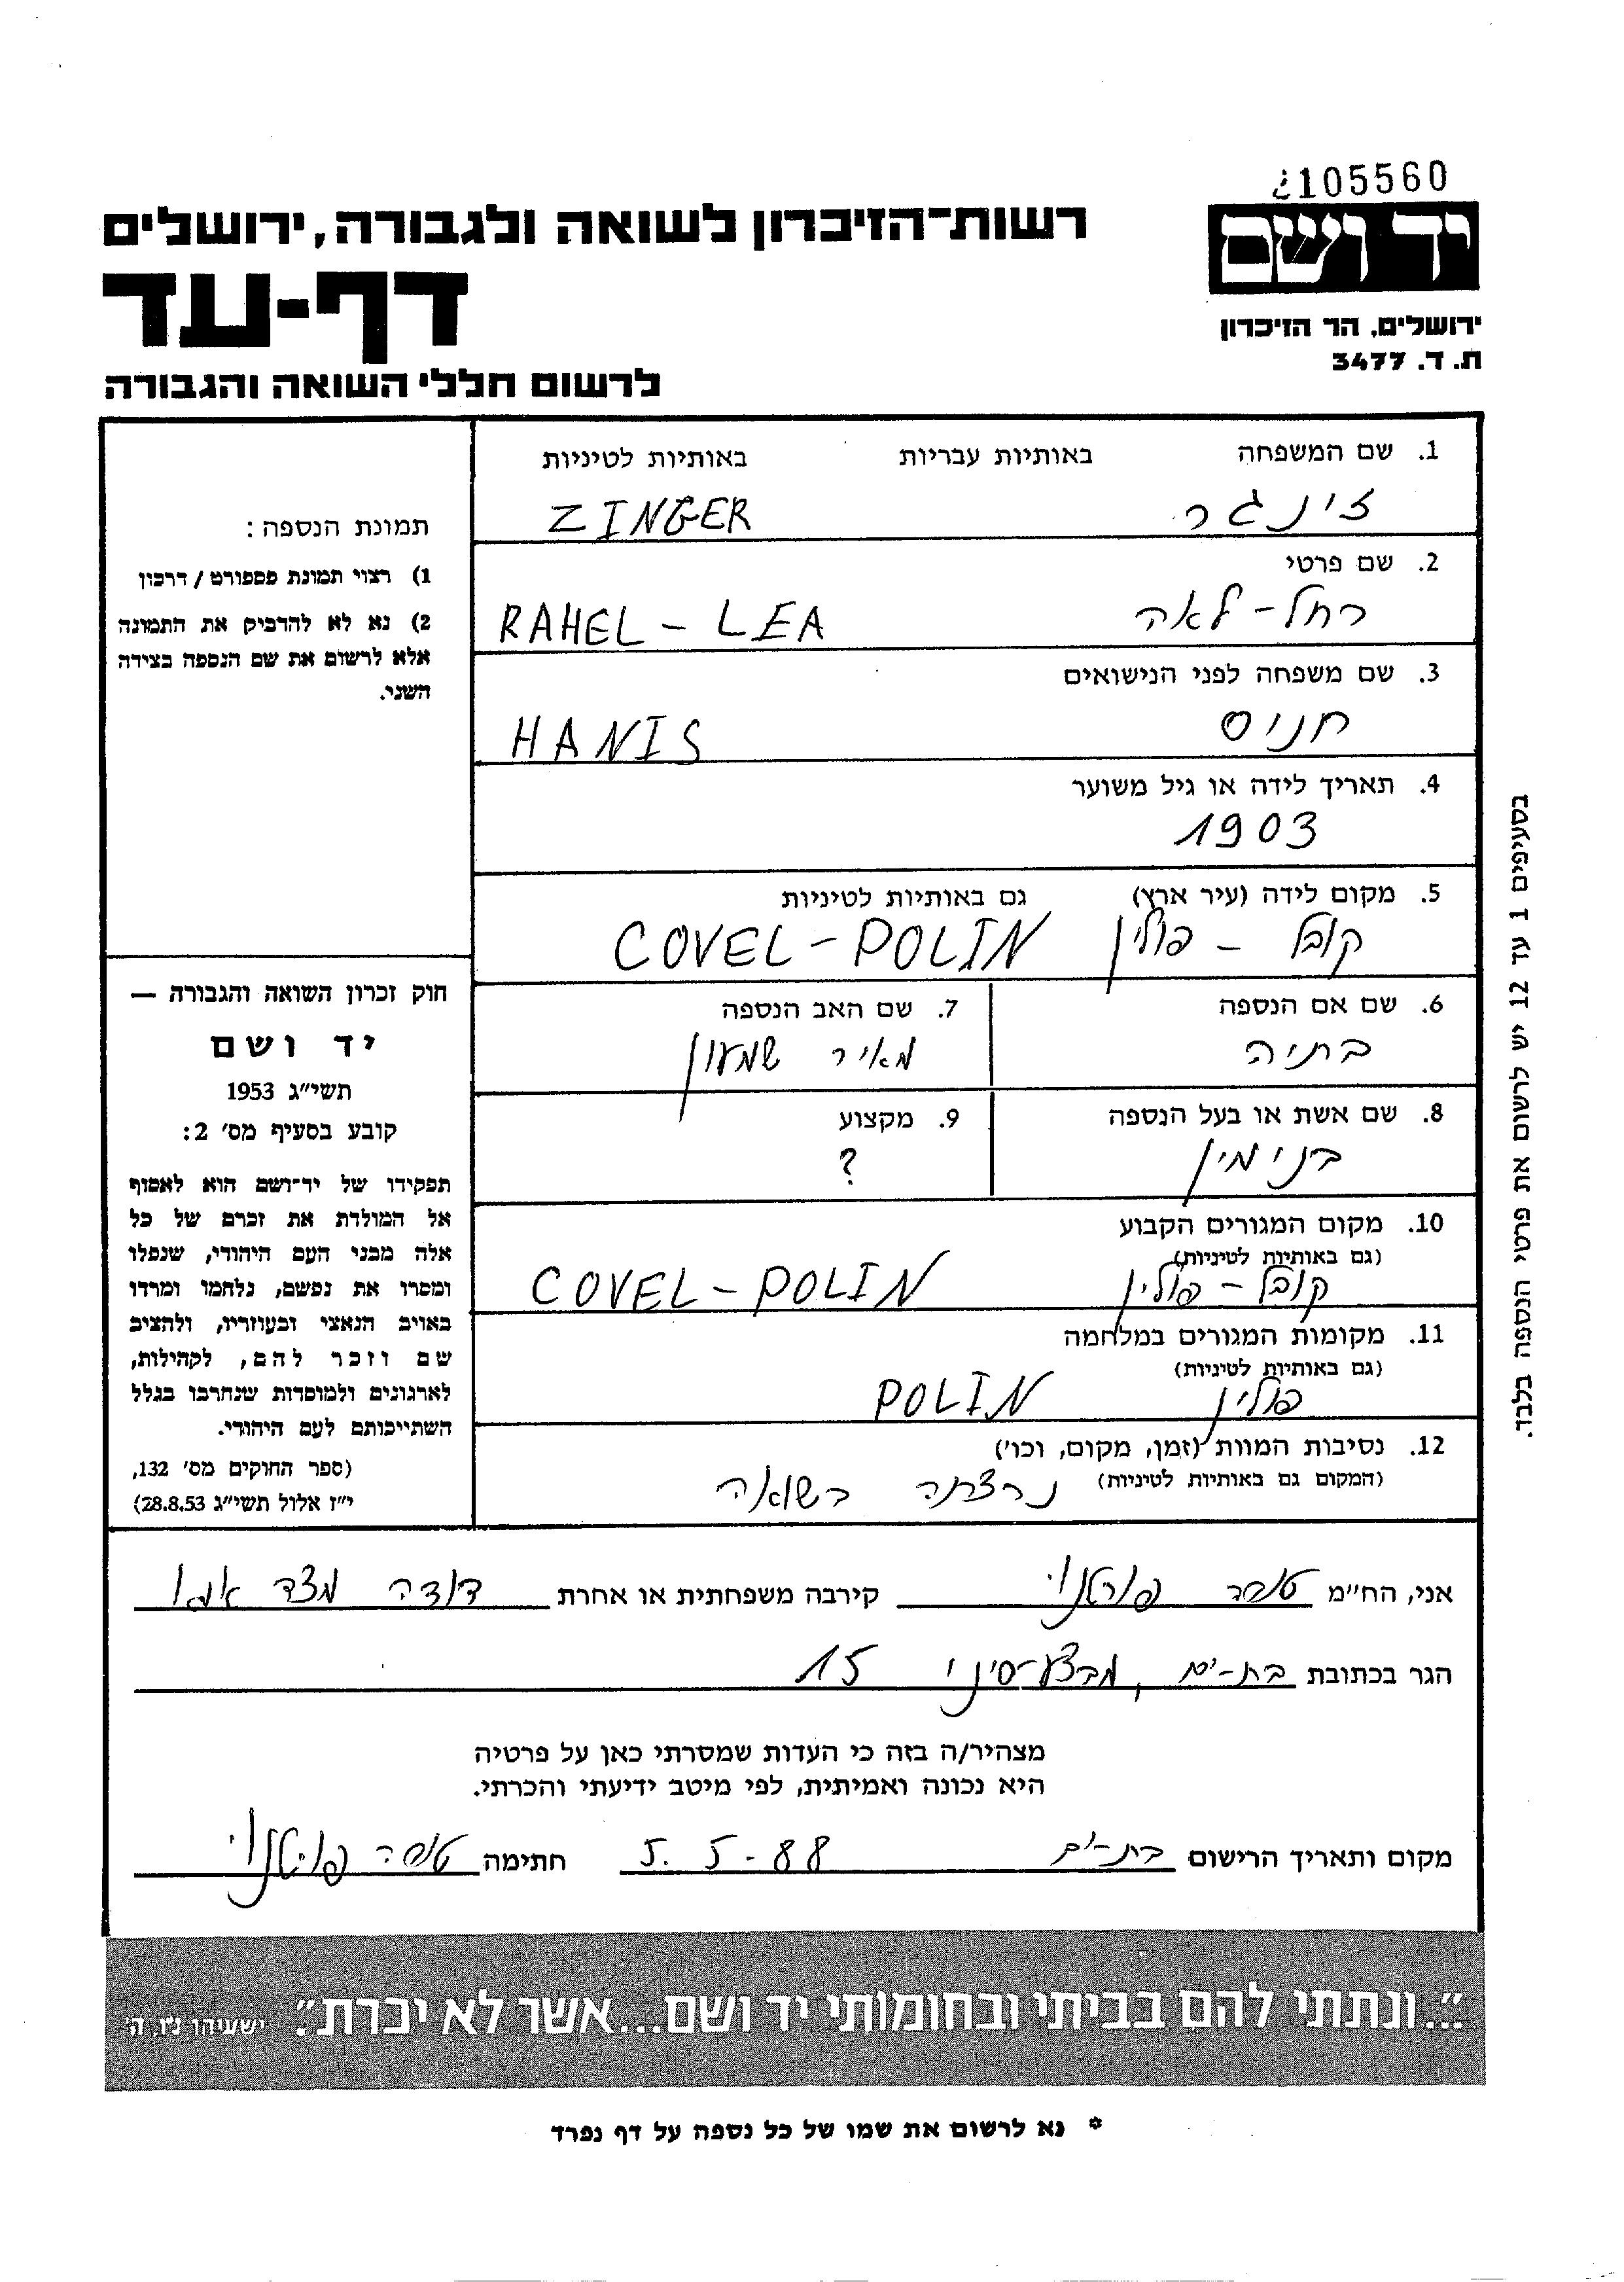 105560
יד ושם
רשות-הזיכרון לשואה ולגבורה, ירושלים
דף-עד
ירושלים, הר הזיכרון
ת. ד. 3477
לרשום חללי השואה והגבורה
1. שם המשפחה באותיות עבריות באותיות לטיניות
זינגר ZINGER
2. שם פרטי
רחל-לאה RAHEL - LEA
3. שם משפחה לפני הנישואים
חניס HANIS
4. תאריך לידה או גיל משוער
1903
5. מקום לידה (עיר ארץ) גם באותיות לטיניות
קובל - פולין COVEL - POLIN
6. שם אם הנספה
בתיה
7. שם האב הנספה
מאיר שמעון
8. שם אשת או בעל הנספה
בנימין
9. מקצוע
?
10. מקום המגורים הקבוע
(גם באותיות לטיניות)
קובל - פולין COVEL - POLIN
11. מקומות המגורים במלחמה
(גם באותיות לטיניות)
פולין POLIN
12. נסיבות המוות (זמן, מקום, וכו')
(המקום גם באותיות לטיניות)
נרצתה בשואה
תמונת הנספה:
1) רצוי תמונת פספורט / דרכון
2) נא לא להדביק את התמונה
אלא לרשום את שם הנספה בצידה
השני.
חוק זכרון השואה והגבורה —
יד ושם
תשי"ג 1953
קובע בסעיף מס' 2:
תפקידו של יד-ושם הוא לאסוף
אל המולדת את זכרם של כל
אלה מבני העם היהודי, שנפלו
ומסרו את נפשם, נלחמו ומרדו
באויב הנאצי ובעוזריו, ולהציב
שם וזכר להם, לקהילות,
לארגונים ולמוסדות שנחרבו בגלל
השתייכותם לעם היהודי.
(ספר החוקים מס' 132,
י"ז אלול תשי"ג 28.8.53)
בסעיפים 1 עד 12 יש לרשום את פרטי הנספה בלבד.
אני, הח"מ קירבה משפחתית או אחרת דודה מצד אמא
הגר בכתובת בת-ים, מבצע-סיני 15
מצהיר/ה בזה כי העדות שמסרתי כאן על פרטיה
היא נכונה ואמיתית, לפי מיטב ידיעתי והכרתי.
מקום ותאריך הרישום בת-ים 5.5-88 חתימה
"...ונתתי להם בביתי ובחומותי יד ושם...אשר לא יכרת". ישעיהו נו, ה'
* נא לרשום את שמו של כל נספה על דף נפרד